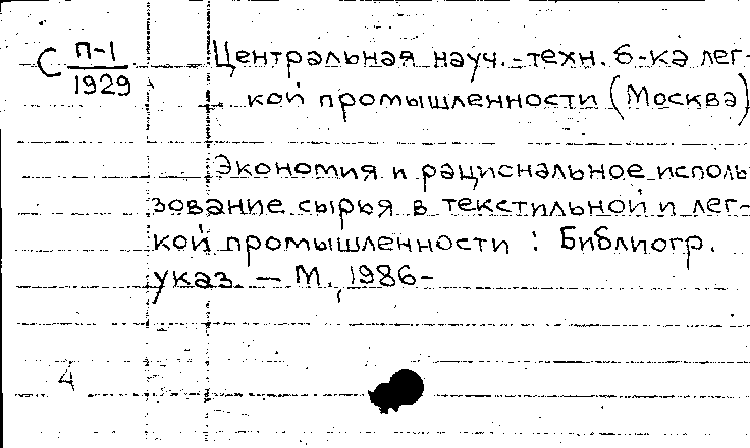 С П-1
1929
Центральная науч.-техн. б-ка лег-
кой промышленности (Москва)
Экономия и рациональное исполь
зование сырья в текстильной и лег-
кой промышленности : Библиогр.
указ. — М., 1986-
4